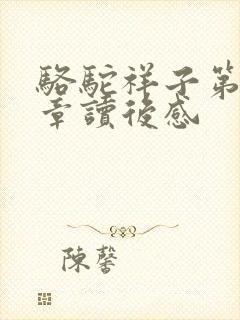 駱駝祥子第
章讀後感
陳馨